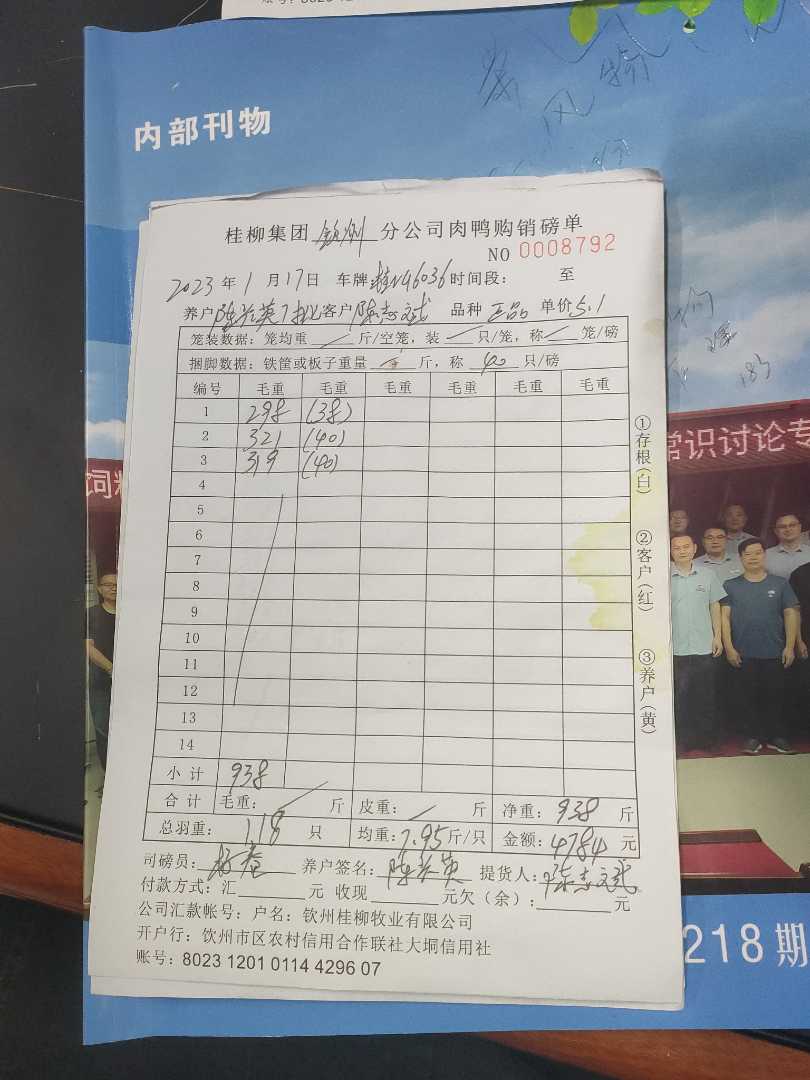 内部刊物
桂柳集团 钦州 分公司肉鸭购销磅单
NO 0008792
2023年1月17日 车牌 桂N46036 时间段: 至
养户 陈兰英7批 客户 陈志斌 品种 正品 单价5.1
笼装数据: 笼均重 / 斤/空笼, 装 / 只/笼, 称 / 笼/磅
捆脚数据: 铁筐或板子重量 斤, 称 40 只/磅
编号 毛重 毛重 毛重 毛重 毛重 毛重
1 298 (38)
2 321 (40)
3 319 (40)
4
5
6
7
8
9
10
11
12
13
14
小计 938
合计 毛重: / 斤 皮重: / 斤 净重: 938 斤
总羽重: 118 只 均重: 7.95 斤/只 金额: 4784 元
司磅员: 养户签名: 陈兰英 提货人: 陈志斌
付款方式: 汇 元 收现 元欠(余): 元
公司汇款帐号: 户名: 钦州桂柳牧业有限公司
开户行: 钦州市区农村信用合作联社大垌信用社
账号: 8023 1201 0114 4296 07
①存根(白)
②客户(红)
③养户(黄)
常识讨论专
218期